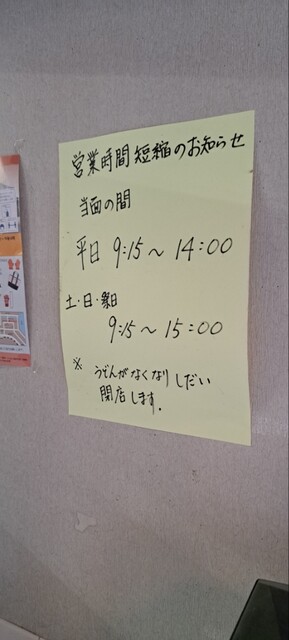 営業時間短縮のお知らせ
当面の間
平日 9:15～14:00
土・日・祭日
9:15～15:00
※ うどんがなくなりしだい
閉店します.